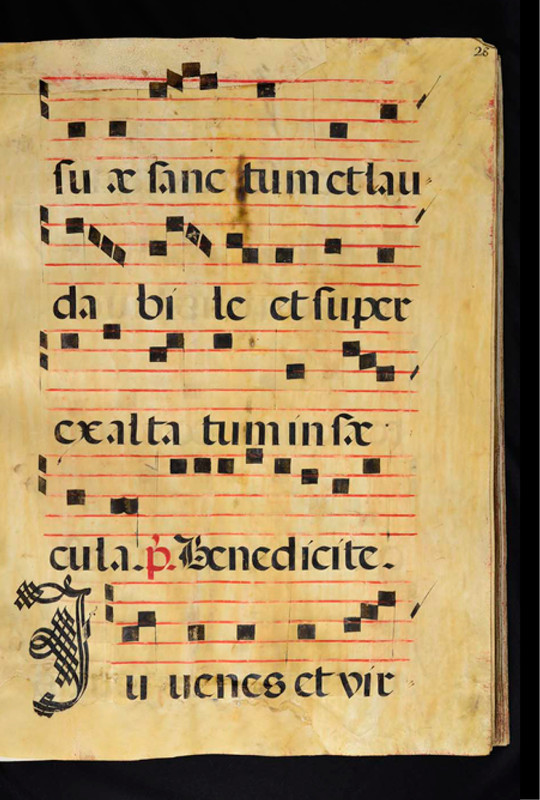 28
ſu æ ſanc tum et lau
da bi le et ſuper
exalta tum in ſæ
cula. p̄. Benedicite.
Ju uenes et vir